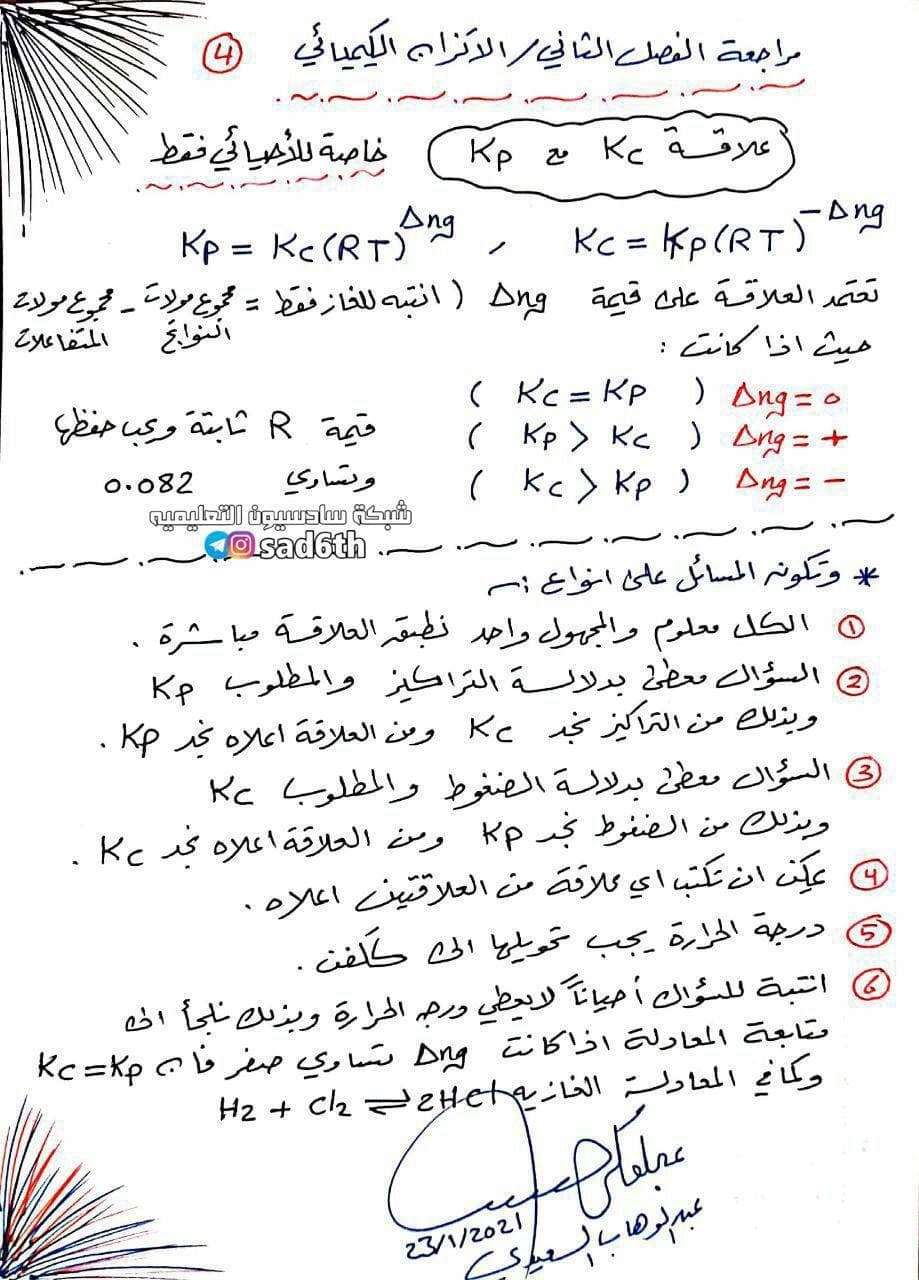 مراجعة الفصل الثاني / الاتزان الكيميائي ④
علاقة Kc مع Kp خاصة للأحيائي فقط
Kp = Kc(RT)^Δng , Kc = Kp(RT)^-Δng
تعتمد العلاقة على قيمة Δng ( انتبه للغاز فقط = مجموع مولات - مجموع مولات
النواتج المتفاعلات
حيث اذا كانت :
Δng = 0 ( Kc = Kp )
Δng = + ( Kp > Kc )
Δng = - ( Kc > Kp )
قيمة R ثابتة ويجب حفظها
وتساوي 0.082
شبكة سادسيون التعليميه
sad6th
* وتكون المسائل على انواع :-
① الكل معلوم والمجهول واحد نطبق العلاقة مباشرة .
② السؤال معطى بدلالة التراكيز والمطلوب Kp
وبذلك من التراكيز نجد Kc ومن العلاقة اعلاه نجد Kp .
③ السؤال معطى بدلالة الضغوط والمطلوب Kc
وبذلك من الضغوط نجد Kp ومن العلاقة اعلاه نجد Kc .
④ يمكن ان تكتب اي علاقة من العلاقتين اعلاه .
⑤ درجة الحرارة يجب تحويلها الى كلفن .
⑥ انتبة للسؤال أحياناً لا يعطي درجه الحرارة وبذلك نلجأ الى
متابعة المعادلة اذا كانت Δng تساوي صفر فان Kc = Kp
وكما في المعادلة الغازيه H2 + Cl2 ⇌ 2HCl
23/1/2021
عبد الوهاب السعيدي